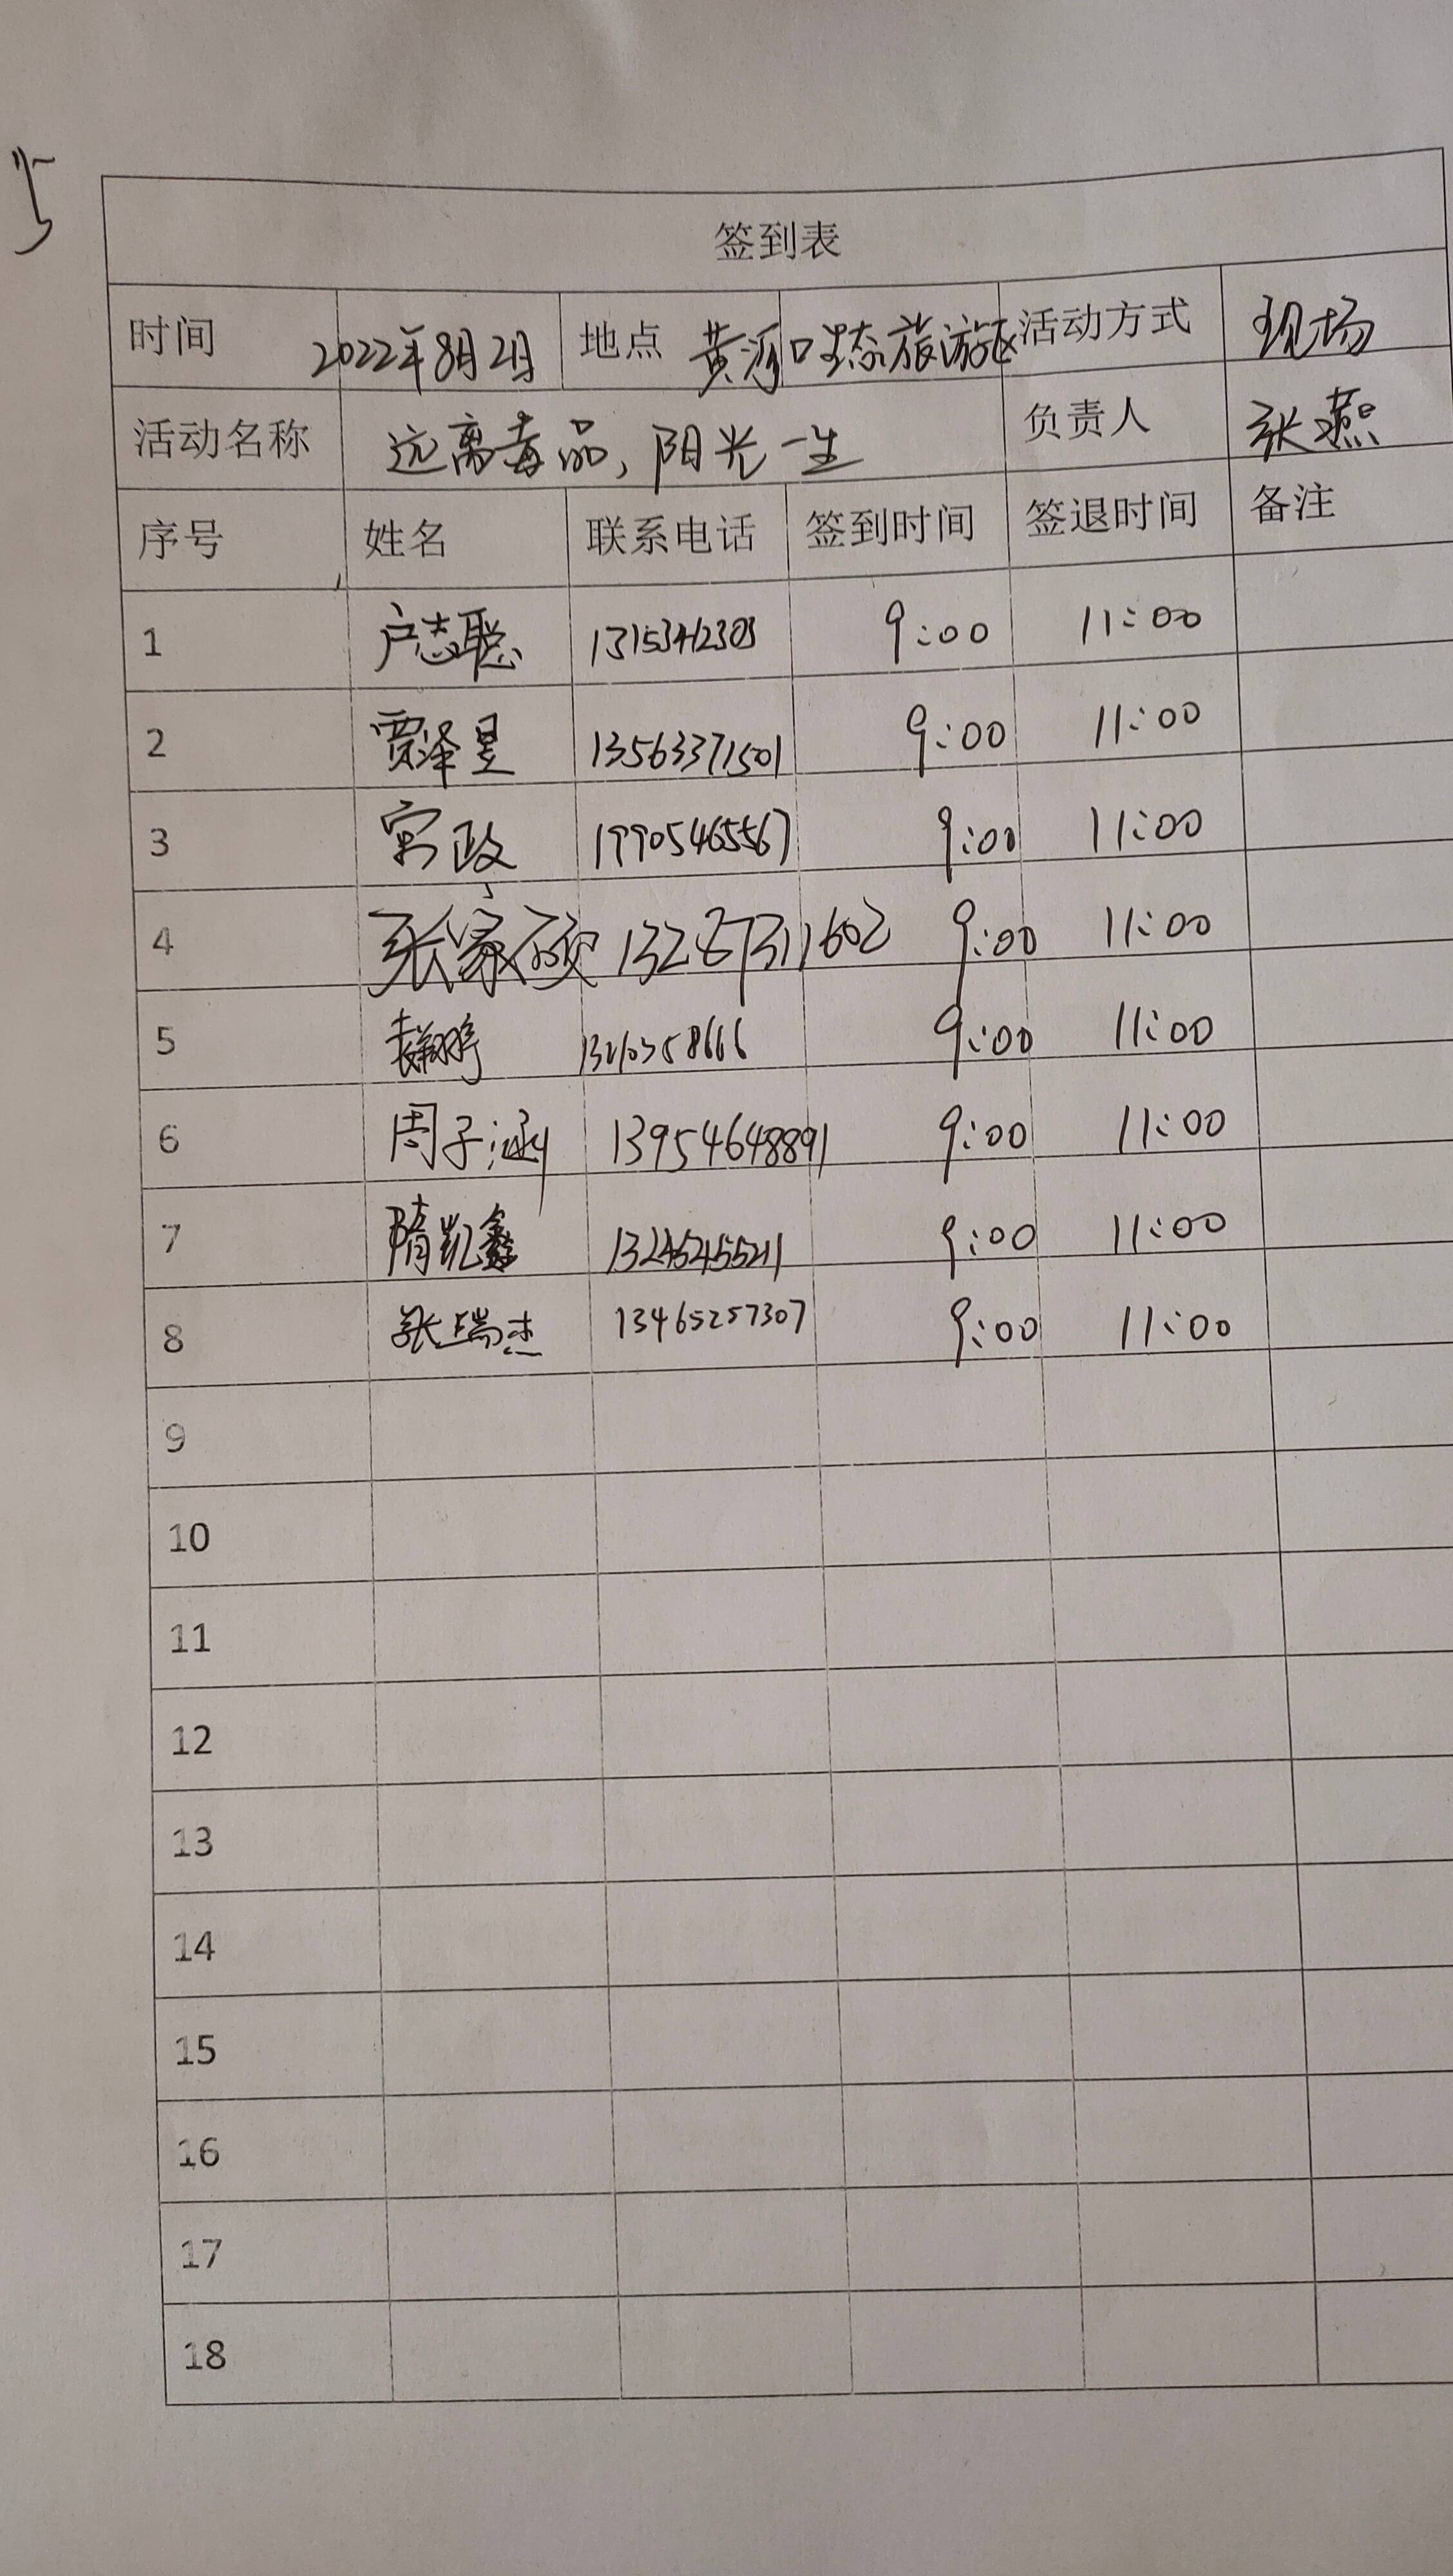 5
签到表
时间 2022年8月2日 地点 黄河口生态旅游区 活动方式 现场
活动名称 远离毒品,阳光一生 负责人 张燕
序号 姓名 联系电话 签到时间 签退时间 备注
1 户志聪 9:00 11:00
2 贾泽昱 13563371501 9:00 11:00
3 宫政 19905465567 9:00 11:00
4 张家硕 13287311602 9:00 11:00
5 9:00 11:00
6 周子涵 13954648891 9:00 11:00
7 隋凯鑫 9:00 11:00
8 张瑞杰 13465257307 9:00 11:00
9
10
11
12
13
14
15
16
17
18